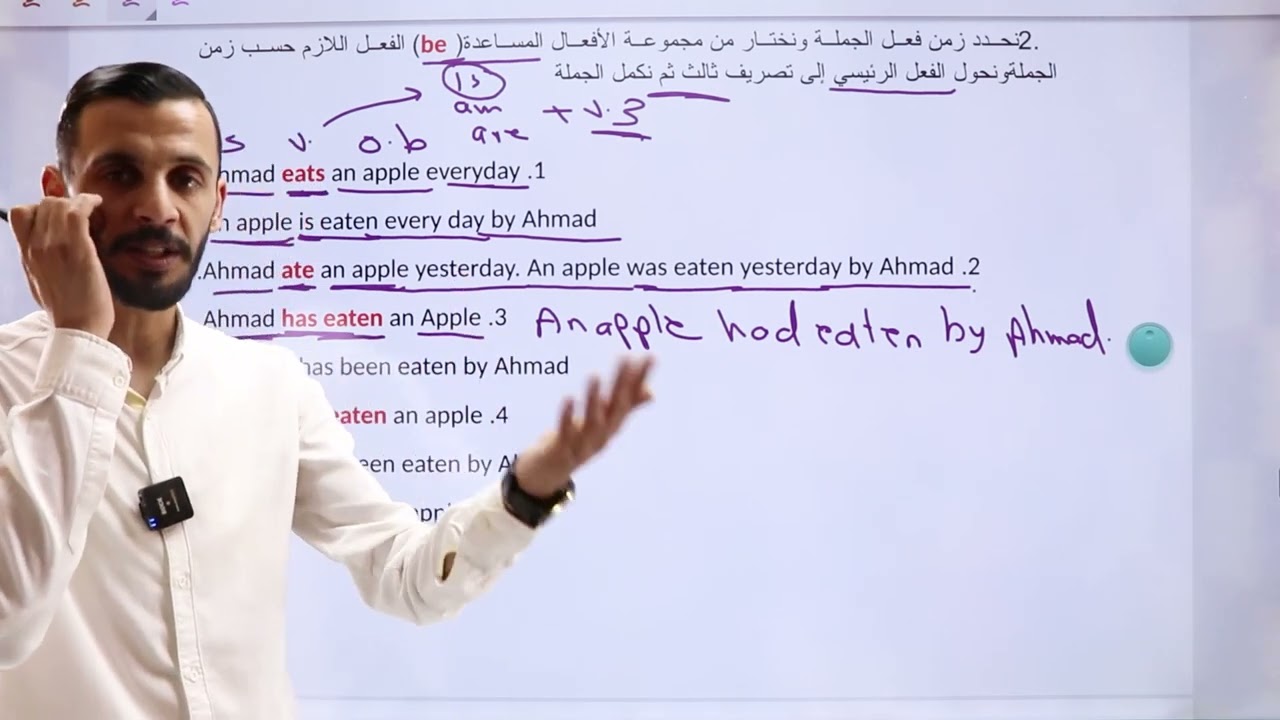 2. نحدد زمن فعل الجملة ونختار من مجموعة الأفعال المساعدة( be) الفعل اللازم حسب زمن
الجملةونحول الفعل الرئيسي إلى تصريف ثالث ثم نكمل الجملة
is
am + v.3
are
s v. o.b
hmad eats an apple everyday .1
n apple is eaten every day by Ahmad
.Ahmad ate an apple yesterday. An apple was eaten yesterday by Ahmad .2
Ahmad has eaten an Apple .3 An apple had eaten by Ahmad.
has been eaten by Ahmad
eaten an apple .4
een eaten by A